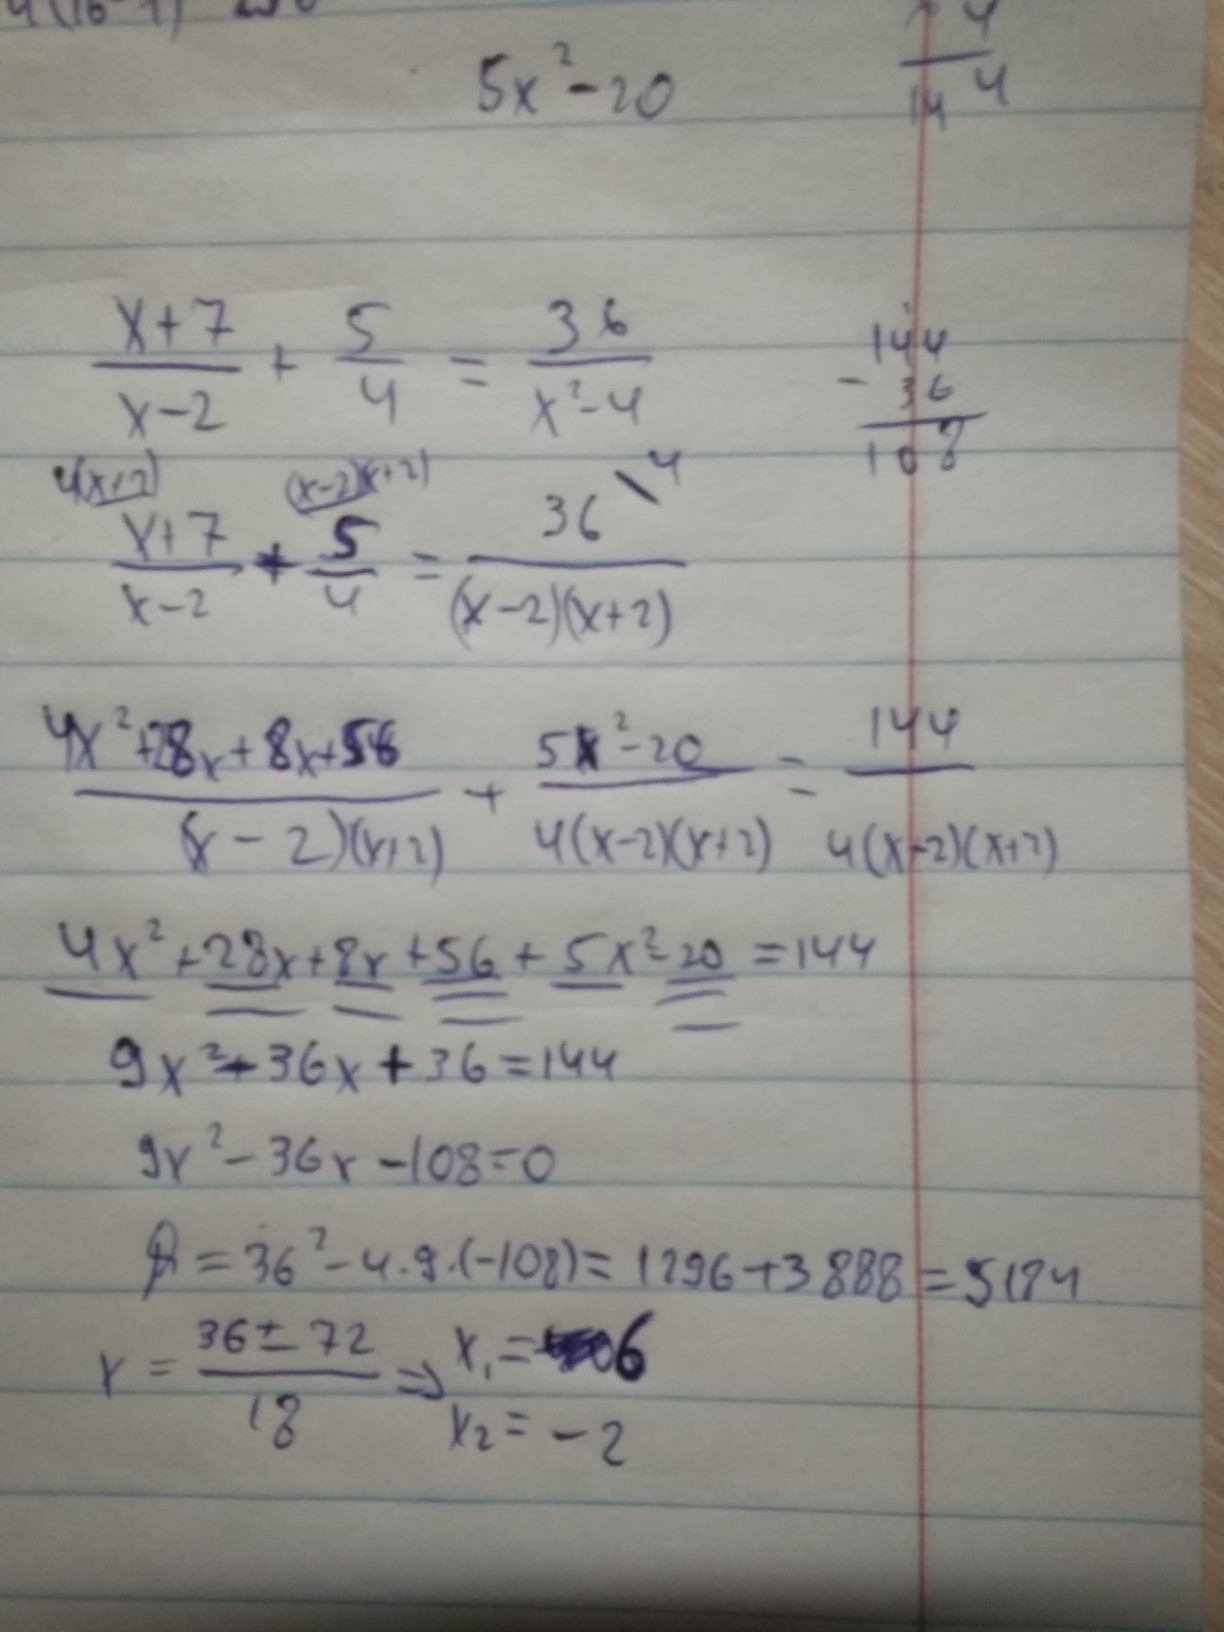 5x² - 20
4
14 4
(x+7)/(x-2) + 5/4 = 36/(x²-4)
144
- 36
108
4(x+2) (x-2)(x+2) \4
(x+7)/(x-2) + 5/4 = 36/((x-2)(x+2))
(4x²+28x+8x+56)/((x-2)(x+2)) + (5x²-20)/(4(x-2)(x+2)) = 144/(4(x-2)(x+2))
4x² + 28x + 8x + 56 + 5x² - 20 = 144
9x² + 36x + 36 = 144
9x² - 36x - 108 = 0
= 36² - 4·9·(-108) = 1296 + 3888 = 5184
x = (36 ± 72)/18 ⇒ x₁ = 6
x₂ = -2